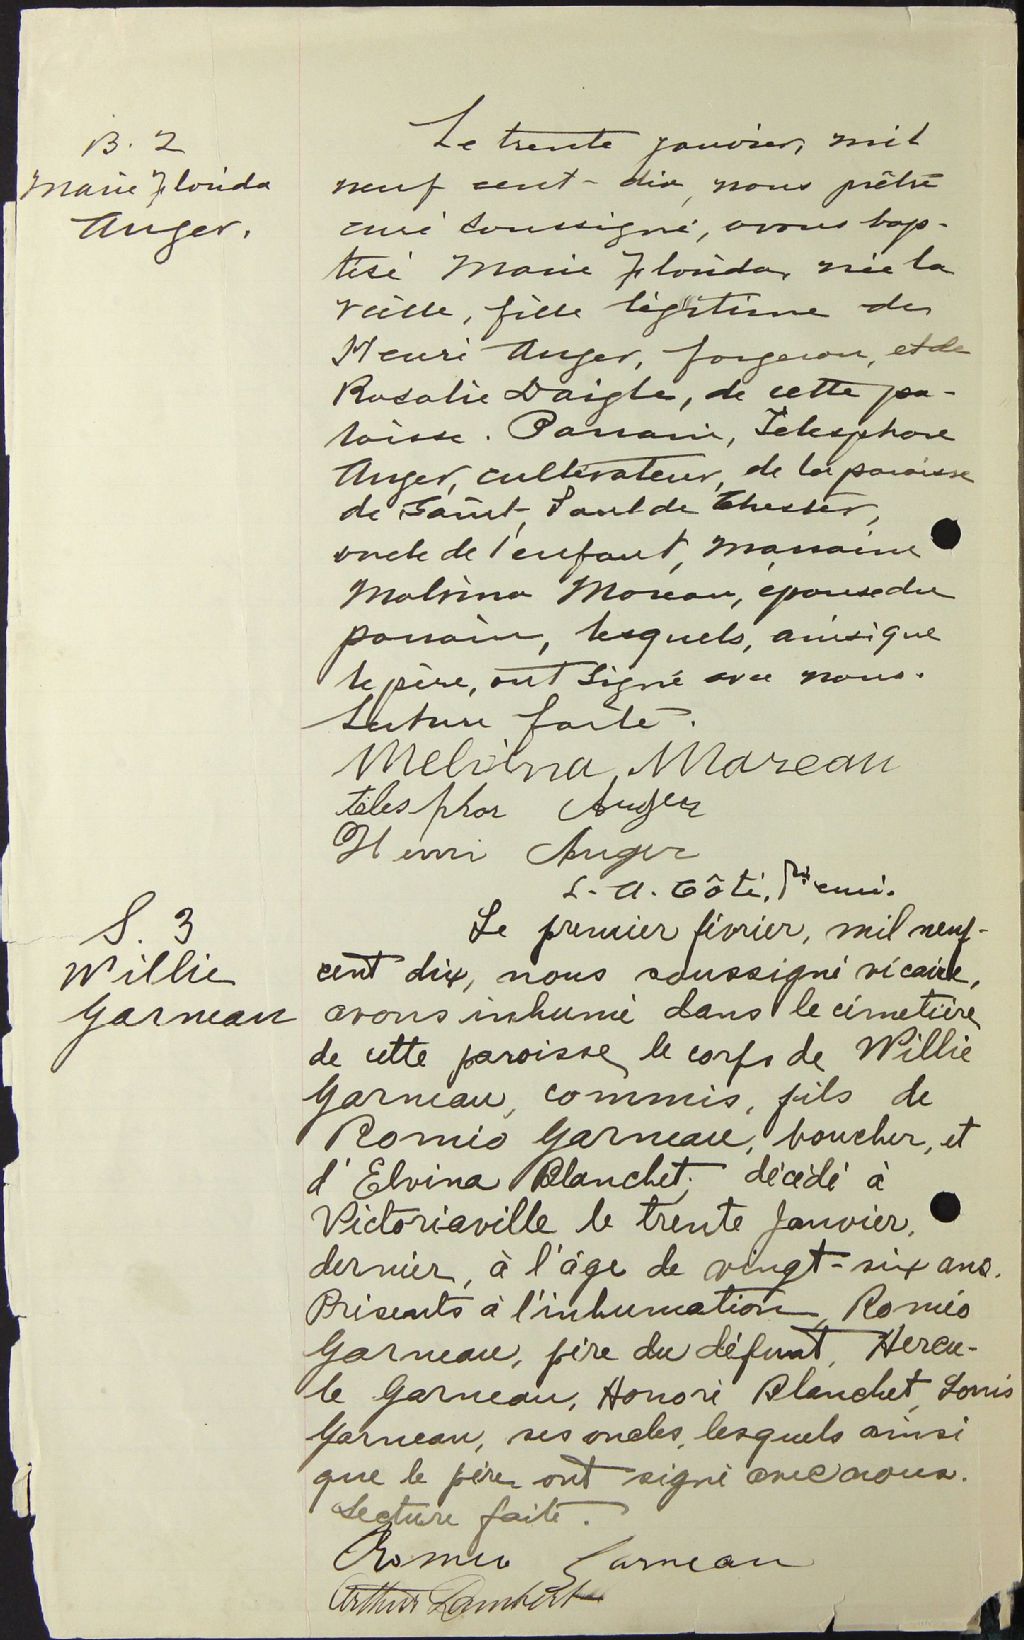 B. 2
Marie Florida
Auger.
Le trente janvier, mil
neuf cent-dix, nous prêtre
curé soussigné, avons bap-
tisé Marie Florida, née la
veille, fille légitime de
Henri Auger, forgeron, et de
Rosalie Daigle, de cette pa-
roisse. Parrain, Télesphore
Auger, cultivateur, de la paroisse
de Saint-Paul de Chester,
oncle de l'enfant, marraine
Malvina Moreau, épouse du
parrain, lesquels, ainsi que
le père, ont signé avec nous.
Lecture faite.
Melvina Mareau
télesphor Auger
Henri Auger
L. A. Côté, Ptre curé.
S. 3
Willie
Garneau
Le premier février, mil neuf-
cent dix, nous soussigné vicaire,
avons inhumé dans le cimetière
de cette paroisse le corps de Willie
Garneau, commis, fils de
Roméo Garneau, boucher, et
d'Elvina Blanchet, décédé à
Victoriaville le trente janvier,
dernier, à l'âge de vingt-six ans.
Présents à l'inhumation, Roméo
Garneau, père du défunt, Hercu-
le Garneau, Honoré Blanchet, Louis
Garneau, ses oncles, lesquels ainsi
que le père ont signé avec nous.
Lecture faite.
Romeo Garneau
Arthur Lambert